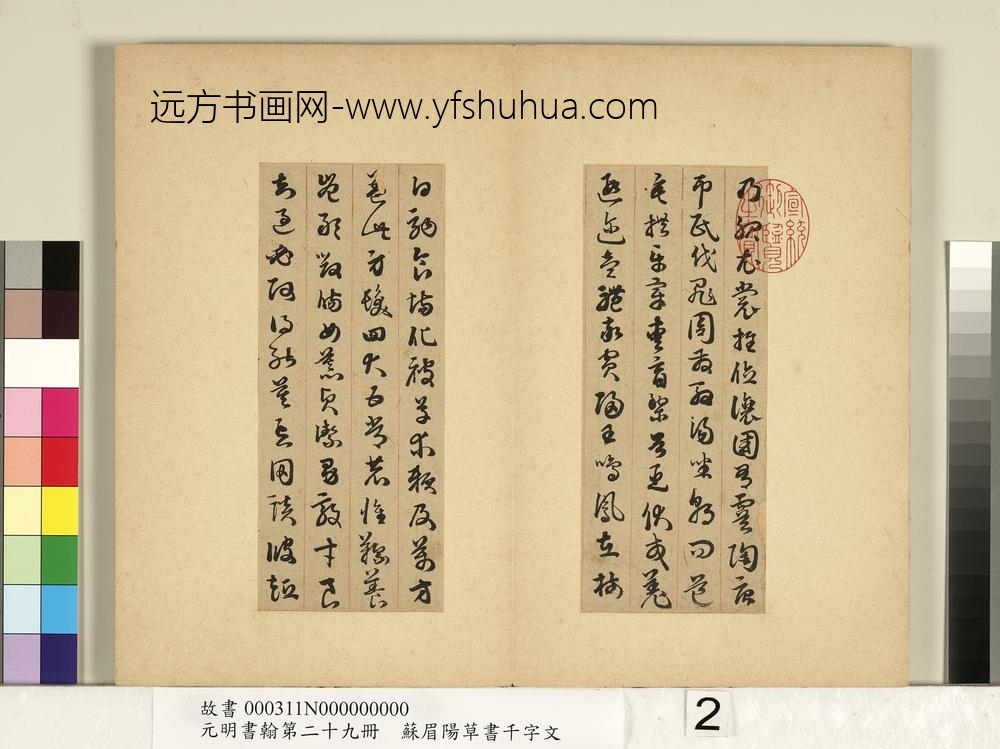 远方书画网-www.yfshuhua.com
宣統御覽之寶
乃服衣裳推位讓國有虞陶唐
弔民伐罪周發殷湯坐朝問道
垂拱平章愛育黎首臣伏戎羌
遐邇壹體率賓歸王鳴鳳在樹
白駒食場化被草木賴及萬方
蓋此身髮四大五常恭惟鞠養
豈敢毀傷女慕貞潔男效才良
知過必改得能莫忘罔談彼短
故書 000311N000000000
元明書翰第二十九冊　蘇眉陽草書千字文
2